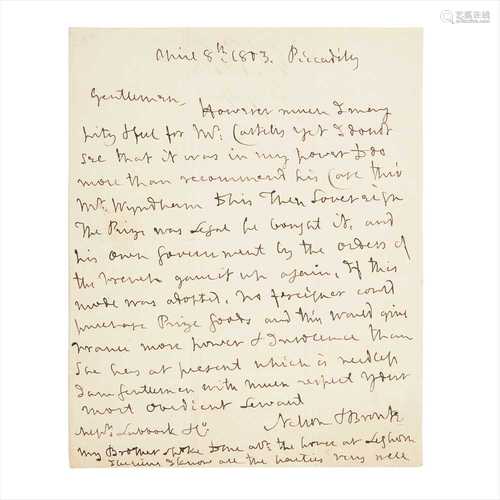 April 8th: 1803. Piccadily
Gentlemen,
However much I may
pity & feel for Mr. Castells yet I do not
see that it was in my power to do
more than recommend his Case thro'
Mr. Wyndham to his Then Sovereign
The Prize was Legal he bought it, and
his own government by the orders of
the French gave it up again, If this
mode was adopted, no foreigner could
purchase Prize Goods and this would give
France more power & Insolence than
She has at present which is needless
I am Gentlemen with much respect your
most obedient Servant
Nelson & Bronte
Messrs Lubbock & Co
My Brother spoke to me abt: the house at Leghorn
I know are the parties very well